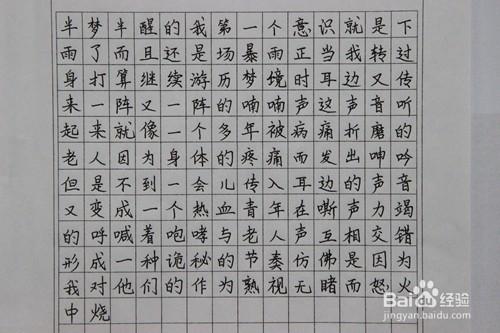 半梦半醒的我第一个意识就是下
雨了而且还是场暴雨正当我转过
身打算继续游历梦境时耳边又传
来一阵又一阵的喃喃声这声音听
起来就像一个多年被病痛折磨的
老人因为身体的疼痛而发出呻吟
但是不到一会儿传入耳边的声音
又变成一个热血青年在嘶声力竭
的呼喊着咆哮与老人声互相交错
形成一种诡秘的节奏仿佛是因为
我对他们的作为熟视无睹而怒火
中烧
Baidu经验
jingyan.baidu.com